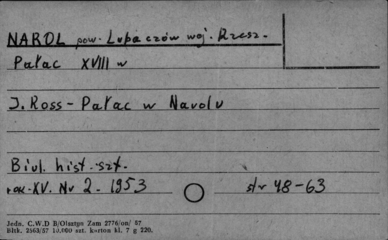 NAROL pow. Lubaczów woj. Rzesz.
Pałac XVIII w
J. Ross - Pałac w Narolu
Biul. hist. szt.
rok. XV. Nr 2. 1953 str 48-63
Jedn. C.W.D B/Olsztyn Zam 2776/on/ 57
Bltk. 2563/57 10.000 szt. karton kl. 7 g 220.